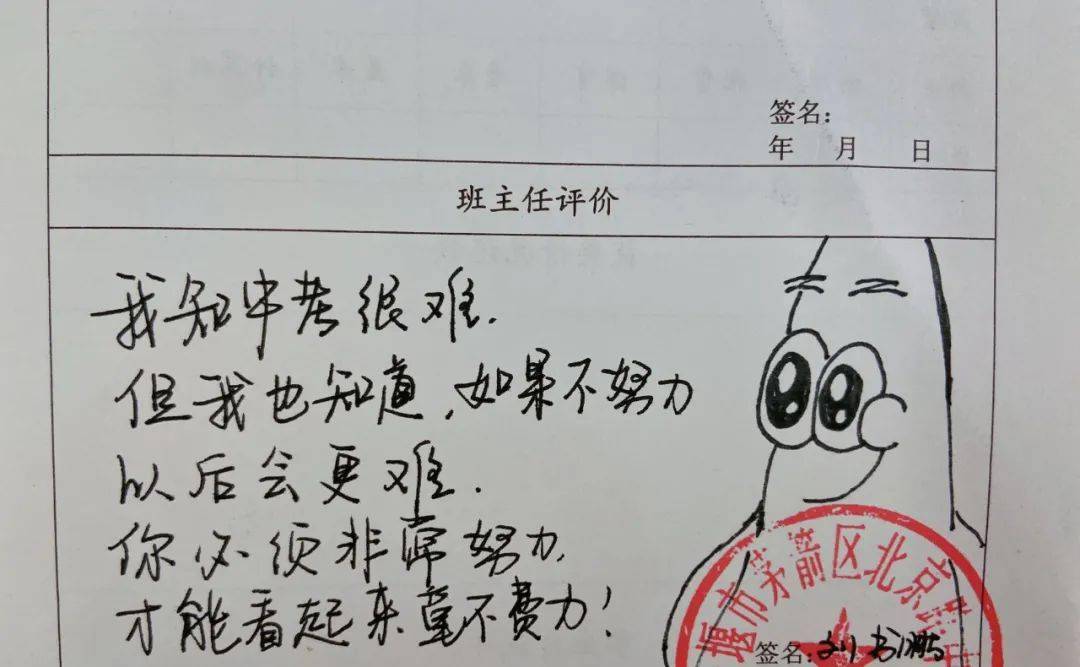 签名：
年 月 日
班主任评价
我知中考很难.
但我也知道,如果不努力
以后会更难.
你必须非常努力,
才能看起来毫不费力!
堰市茅箭区北京
签名: